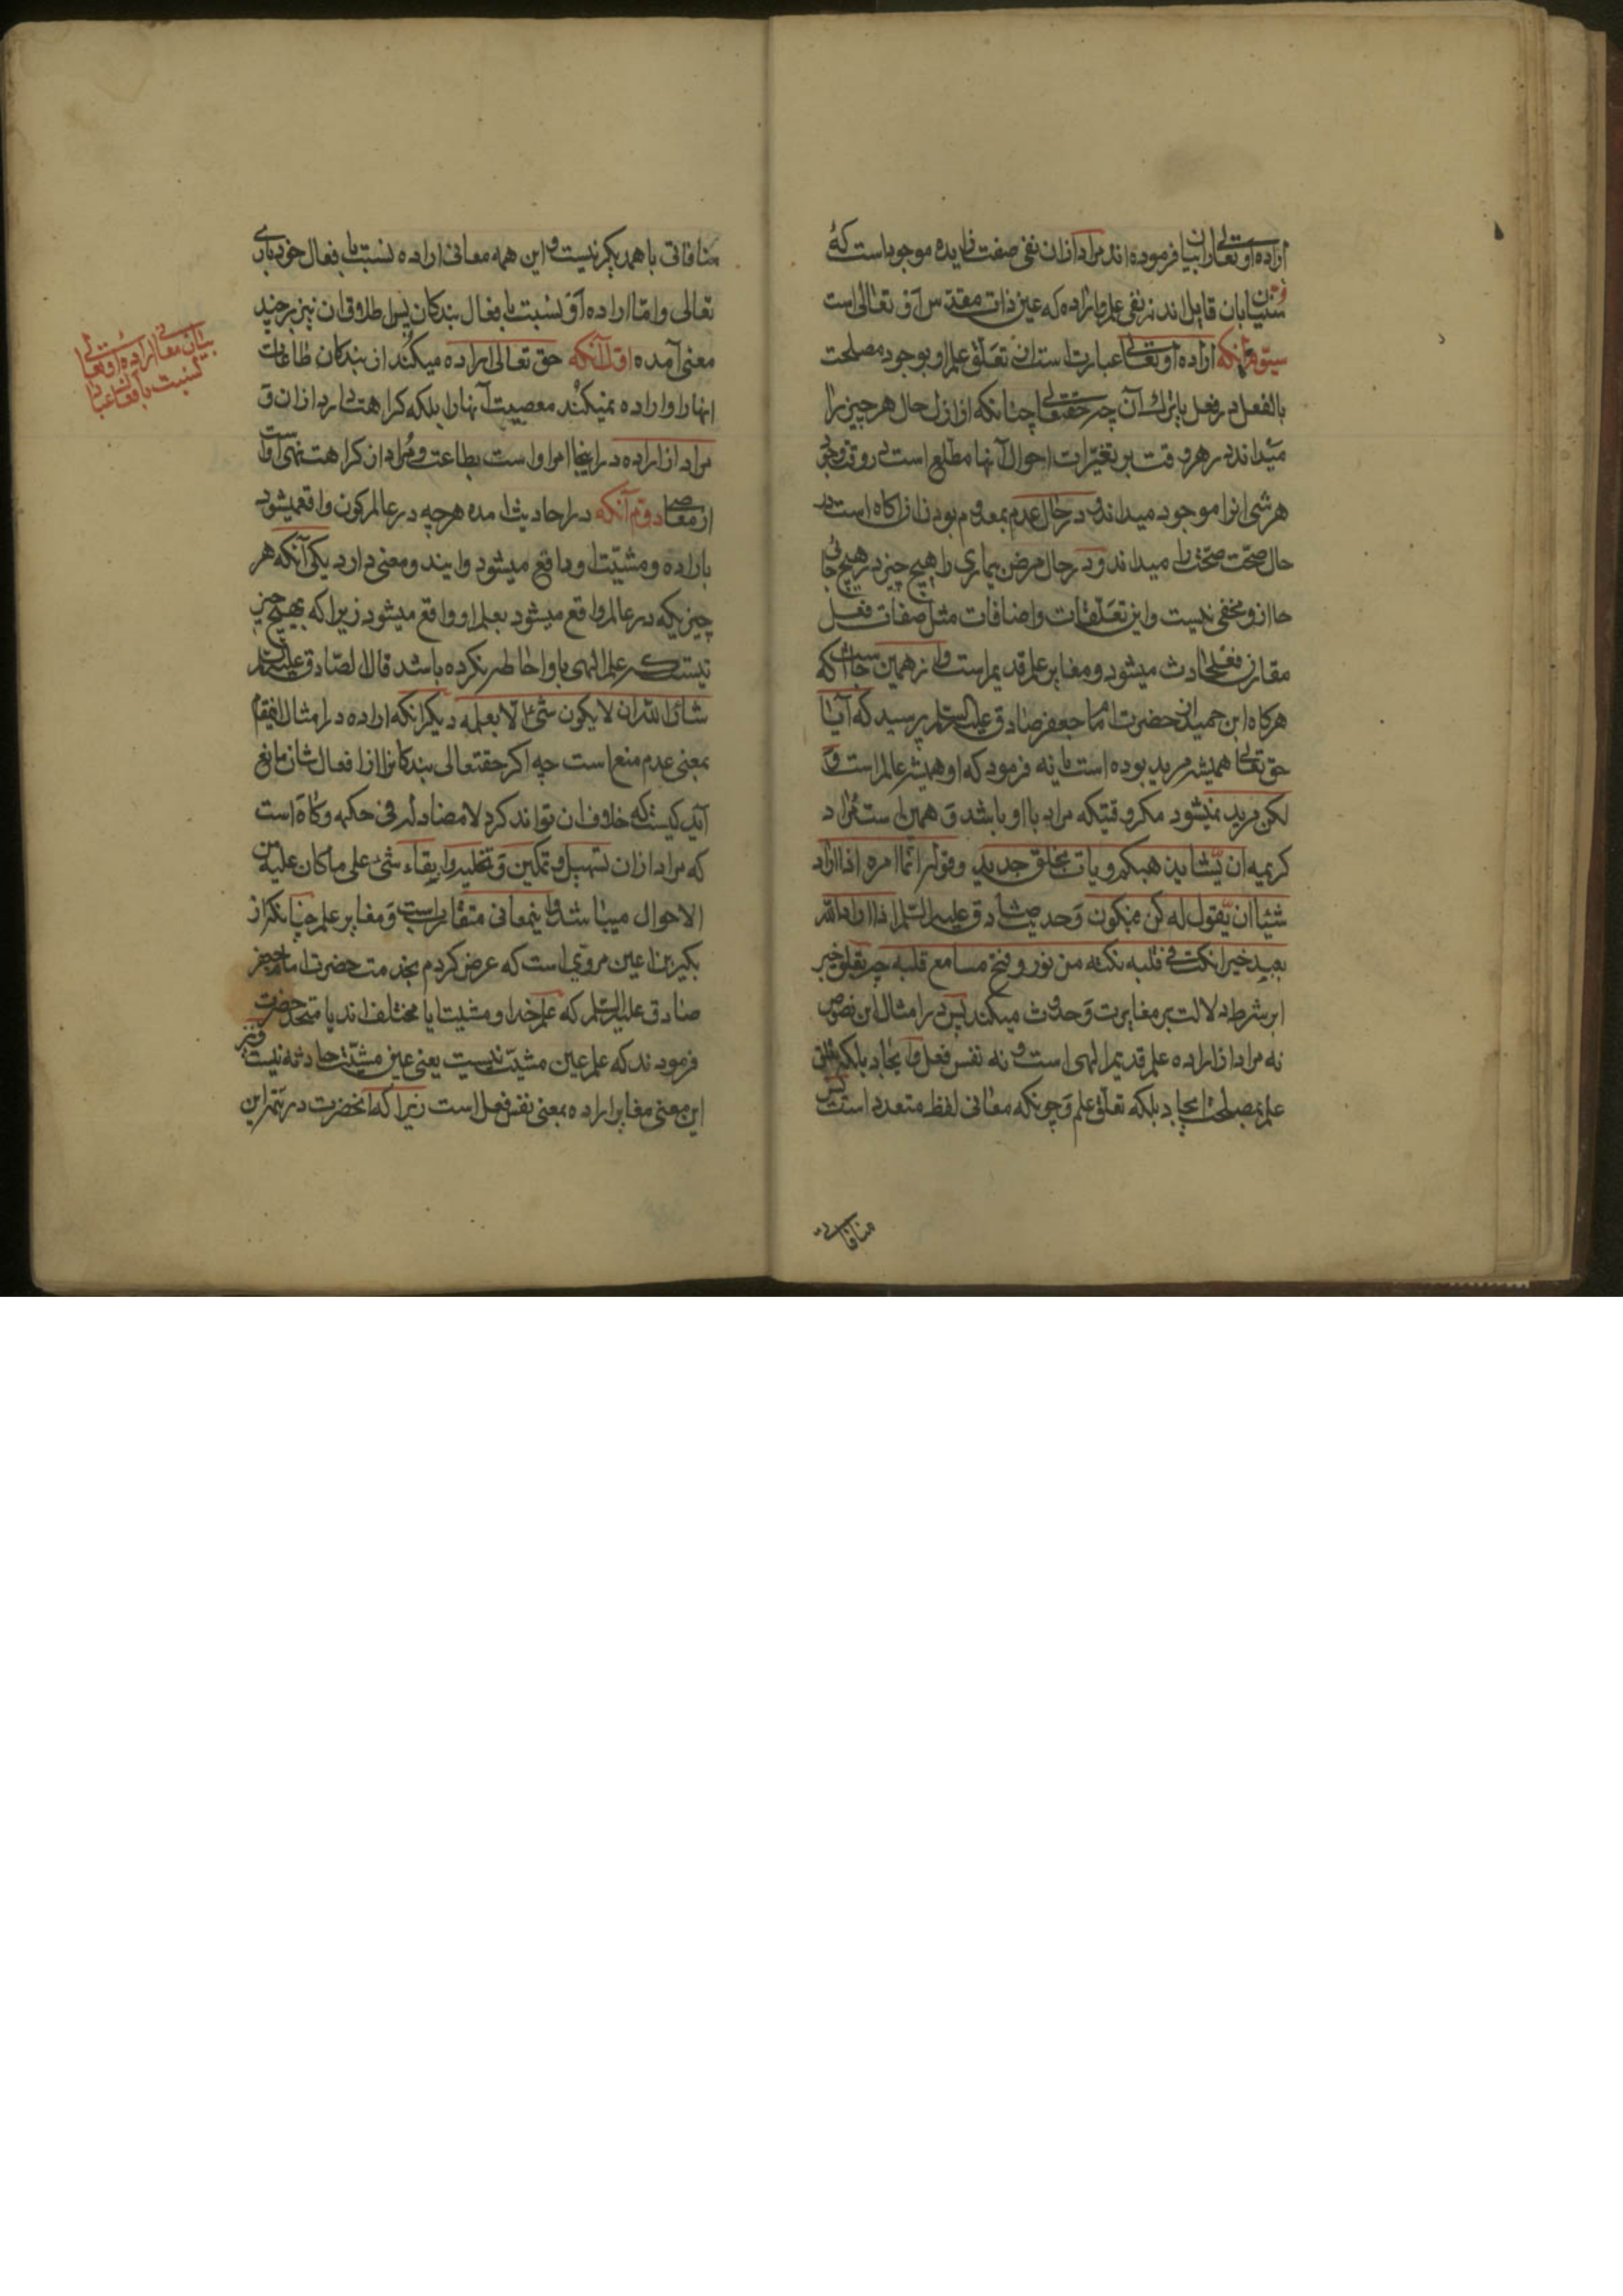 اراده او تعالی را بیان فرموده اند مراد ازان نفی صفت زایده موجوده است که
سنیان بان قایل اند نه نفی علم و اراده که عین ذات مقدس او تعالی است
سیوم آنکه اراده او تعالی عبارت است از تعلق علم او بوجود مصلحت
بالفعل در فعل یا ترك آن چه حقتعالی چنانکه از ازل حال هر چیز را
میداند در هر وقت بر تغیرات احوال آنها مطلع است
هر شی انرا موجود میداند و در حال عدم معدوم بودن ازان اکاه است در
حال صحت صحت را میداند و در حال مرض بیماری را هیچ چیز در هیچ حالی
حال از و مخفی نیست و این تعلقات و اضافات مثل صفات فعل
مقارن فعل حادث میشود و مغایر علم قدیم است و از همین جاست که
هرکاه ابن حمید از حضرت امام جعفر صادق علیه السلام پرسید که آیا
حق تعالی همیشه مرید بوده است یا نه فرمود که او همیشه عالم است و
لکن مرید نمیشود مکر وقتیکه مراد با او باشد و همین است مراد
کریمه ان یشا یذهبکم و یات بخلق جدید و قوله انما امره اذا اراد
شیئا ان یقول له کن فیکون و حدیث صادق علیه السلام اذا اراد الله
بعبد خیرا نکت فی قلبه نکتة من نور و فتح مسامع قلبه چه تعلق خبر
ابن شرط دلالت بر مغایرت و حدوث میکند پس در امثال این نصوص
نه مراد از اراده علم قدیم الهی است و نه نفس فعل و ایجاد بلکه تعلق
علم بمصلحت ایجاد بلکه تعلق علم و چونکه معانی لفظ متعدد است پس
منافاتی
منافاتی با همدیکر نیست و این همه معانی اراده نسبت بافعال خود باری
تعالی و اما اراده او نسبت بافعال بندکان پس اطلاق ان نیز بر چند
معنی آمده اول آنکه حق تعالی اراده میکند از بندکان طاعات
انها را و اراده نمیکند معصیت آنها را بلکه کراهت دارد ازان و
مراد از اراده در اینجا امر او است بطاعت و مراد از کراهت نهی او است
از معاصی دوم آنکه در احادیث امده هرچه در عالم کون واقع میشود
باراده و مشیت او واقع میشود و ایند و معنی دارد یکی آنکه هر
چیزیکه در عالم واقع میشود بعلم او واقع میشود زیرا که هیچ چیز
نیست که علم الهی باو احاطه نکرده باشد قال الصادق علیه السلام
شاء الله ان لا یکون شیء الا بعلمه دیکر انکه اراده در امثال اینمقام
بمعنی عدم منع است چه اکر حقتعالی بندکانرا از افعال شان مانع
آید کیست که خلاف ان تواند کرد لا مضاد له فی حکمه و کاه است
که مراد ازان تسهیل و تمکین و تخلیه و ابقاء شیء علی ما کان علیه من
الاحوال میباشد و اینمعانی متقارب است و مغایر علم چنانکه از
بکیر بن اعین مروی است که عرض کردم بخدمت حضرت امام جعفر
صادق علیه السلام که علم خدا و مشیت ایا مختلف اند یا متحد حضرت
فرمودند که علم عین مشیت نیست یعنی عین مشیت حادثه نیست و نیز
این معنی مغایر اراده بمعنی نفس فعل است زیرا که انحضرت در تتمه این
بیان معانی اراده او تعالی
نسبت بافعال عباد